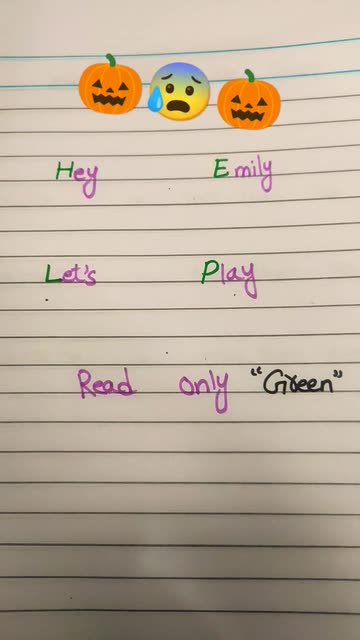 Hey Emily
Let's Play
Read only "Green"